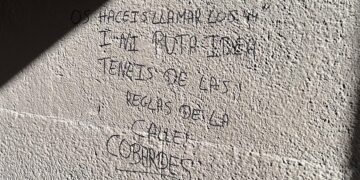 OS HACEIS LLAMAR LOS "4"
I NI PUTA IDEA
TENEIS DE LAS
REGLAS DE LA
CALLE!
COBARDES